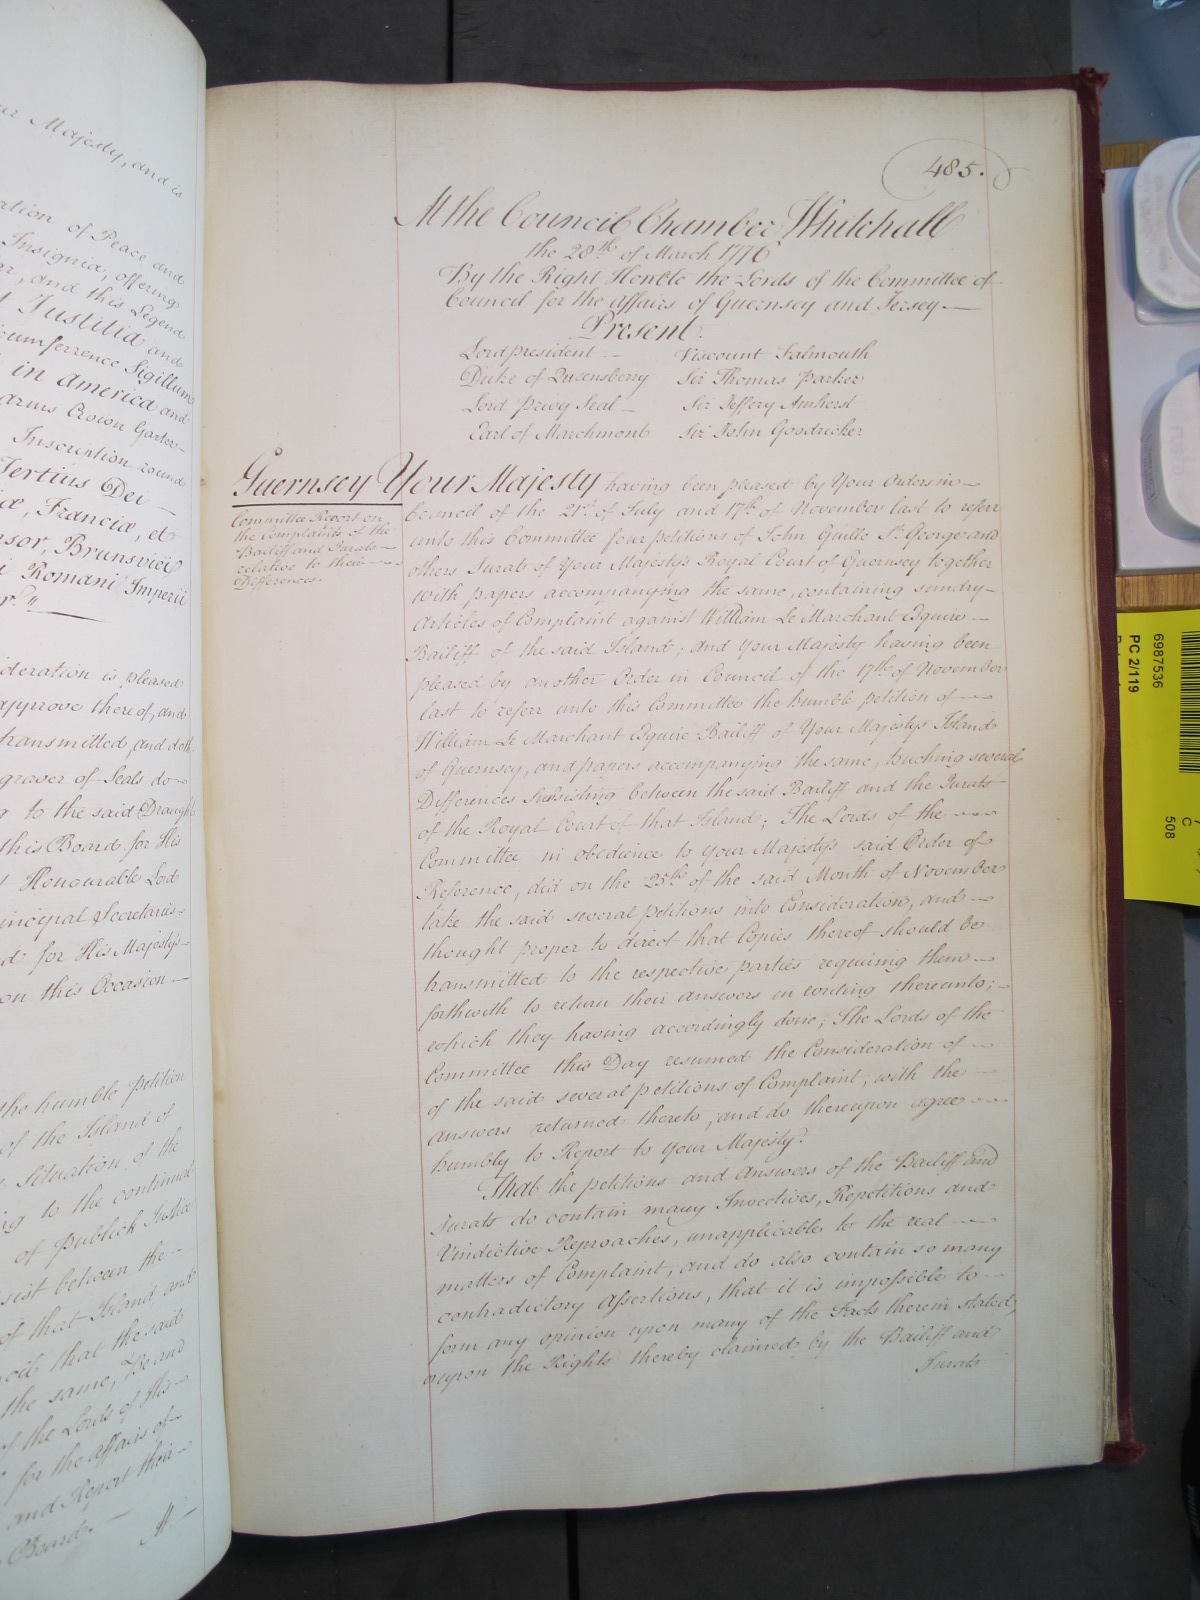 ur Majesty, and is
ation of Peace and
Insignia, offering
ar, and this Legend
Justitia and
cumferrence Sigillum
in America and
arms Crown Garter
Inscription round
Tertius Dei
iæ, Franciæ, et
nsor, Brunsvici
i Romani Imperii
deration is pleased
approve thereof, and
transmitted, and doth
graver of Seals do
g to the said Draught
this Board for His
t Honourable Lord
incipal Secretaries
d for His Majesty's
on this Occasion
the humble Petition
of the Island of
Situation of the
ng to the continual
of publick Justice
sist between the
of that Island and
cil that the said
the same, Be and
of the Lords of His
for the affairs of
and Report their
Board.
At
485.
At the Council Chamber Whitehall
the 28th of March 1776
By the Right Honble the Lords of the Committee of
Council for the affairs of Guernsey and Jersey
Present
Lord president Viscount Falmouth
Duke of Queensberry Sir Thomas Parker
Lord Privy Seal Sir Jeffery Amherst
Earl of Marchmont Sir John Goodricker
Guernsey
Committee Report on
the Complaints of the
Bailiff and Jurats
relative to their
Differences.
Your Majesty having been pleased by Your Orders in
Council of the 21st of July and 17th of November last to referr
unto this Committee four petitions of John Guille St George and
others Jurats of Your Majesty's Royal Court of Guernsey together
with papers accompanying the same, containing sundry
Articles of Complaint against William Le Marchant Esquire
Bailiff of the said Island; and Your Majesty having been
pleased by another Order in Council of the 17th of November
last to referr unto this Committee the humble petition of
William Le Marchant Esquire Bailiff of Your Majestys Island
of Guernsey, and papers accompanying the same, touching several
Differences subsisting between the said Bailiff and the Jurats
of the Royal Court of that Island; The Lords of the
Committee in obedience to Your Majestys said Order of
Reference, did on the 25th of the said Month of November
take the said several petitions into Consideration, and
thought proper to direct that Copies thereof should be
transmitted to the respective parties requiring them
forthwith to return their answers in writing thereunto;
which they having accordingly done; The Lords of the
Committee this Day resumed the Consideration of
of the said several petitions of Complaint, with the
answers returned thereto, and do thereupon agree
humbly to Report to Your Majesty.
That the petitions and Answers of the Bailiff and
Jurats do contain many Invectives, Repetitions and
Vindictive Reproaches, unapplicable to the real
matters of Complaint, and do also contain so many
contradictory Assertions, that it is impossible to
form any opinion upon many of the Facts therein stated,
or upon the Rights thereby claimed by the Bailiff and
Jurats
6987536
PC 2/119
C
508